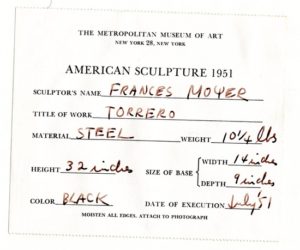 THE METROPOLITAN MUSEUM OF ART
NEW YORK 28, NEW YORK
AMERICAN SCULPTURE 1951
SCULPTOR'S NAME FRANCES MOYER
TITLE OF WORK TORRERO
MATERIAL STEEL WEIGHT 10 1/4 lbs
HEIGHT 32 inches SIZE OF BASE { WIDTH 14 inches
DEPTH 9 inches
COLOR BLACK DATE OF EXECUTION July '51
MOISTEN ALL EDGES. ATTACH TO PHOTOGRAPH